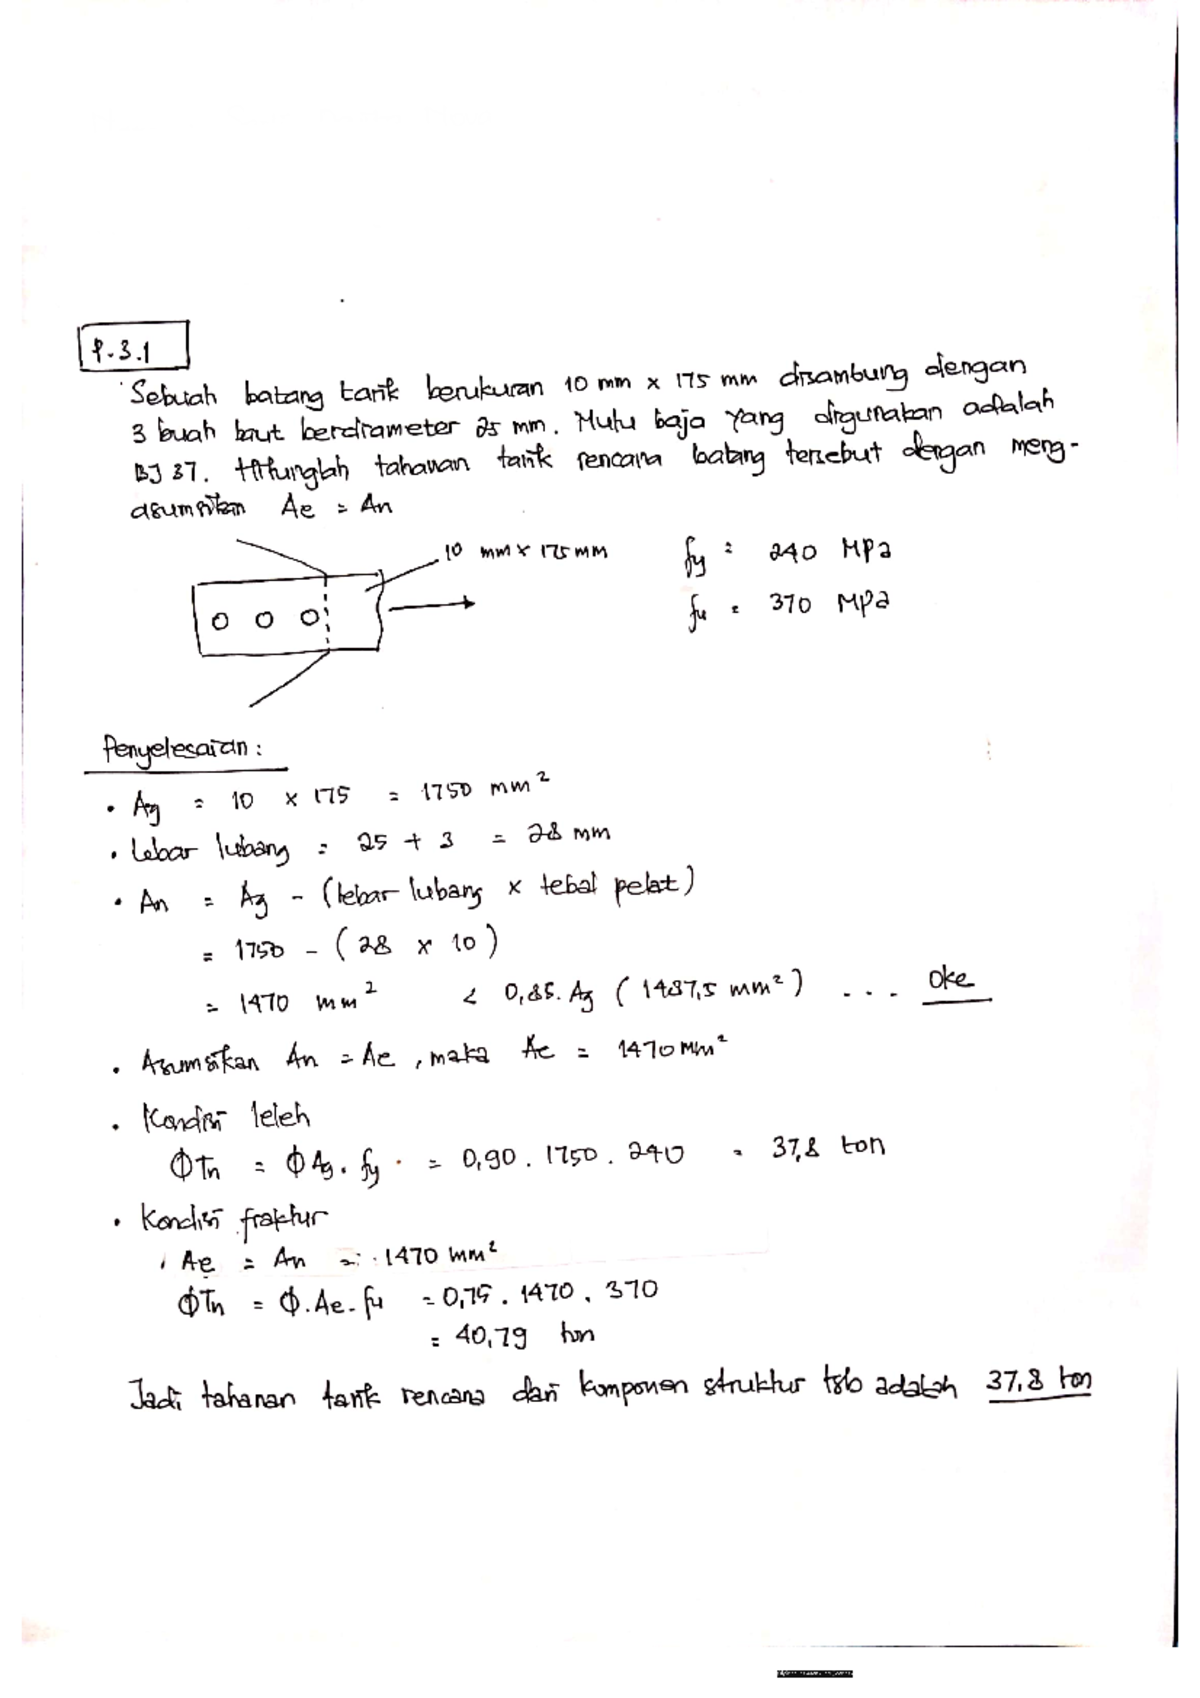 P.3.1
Sebuah batang tarik berukuran 10 mm x 175 mm disambung dengan
3 buah baut berdiameter 25 mm. Mutu baja yang digunakan adalah
BJ 37. Hitunglah tahanan tarik rencana batang tersebut dengan meng-
asumsikan Ae = An
10 mm x 175 mm
fy = 240 MPa
fu = 370 MPa
Penyelesaian :
• Ag = 10 x 175 = 1750 mm²
• Lebar lubang = 25 + 3 = 28 mm
• An = Ag - (lebar lubang x tebal pelat)
= 1750 - (28 x 10)
= 1470 mm² < 0,85. Ag (1487,5 mm²) ... Oke
• Asumsikan An = Ae , maka Ae = 1470 mm²
• Kondisi leleh
ϕTn = ϕ Ag. fy = 0,90 . 1750 . 240 = 37,8 ton
• Kondisi fraktur
Ae = An = 1470 mm²
ϕTn = ϕ.Ae.fu = 0,75 . 1470 . 370
= 40,79 ton
Jadi tahanan tarik rencana dari komponen struktur tsb adalah 37,8 ton